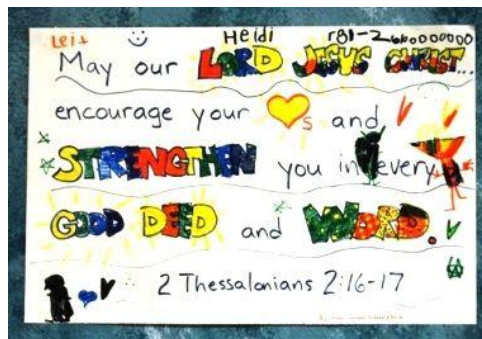 Heidi
May our LORD JESUS CHRIST...
encourage your ♥s and
STRENGTHEN you in every
GOOD DEED and WORD.
2 Thessalonians 2:16-17